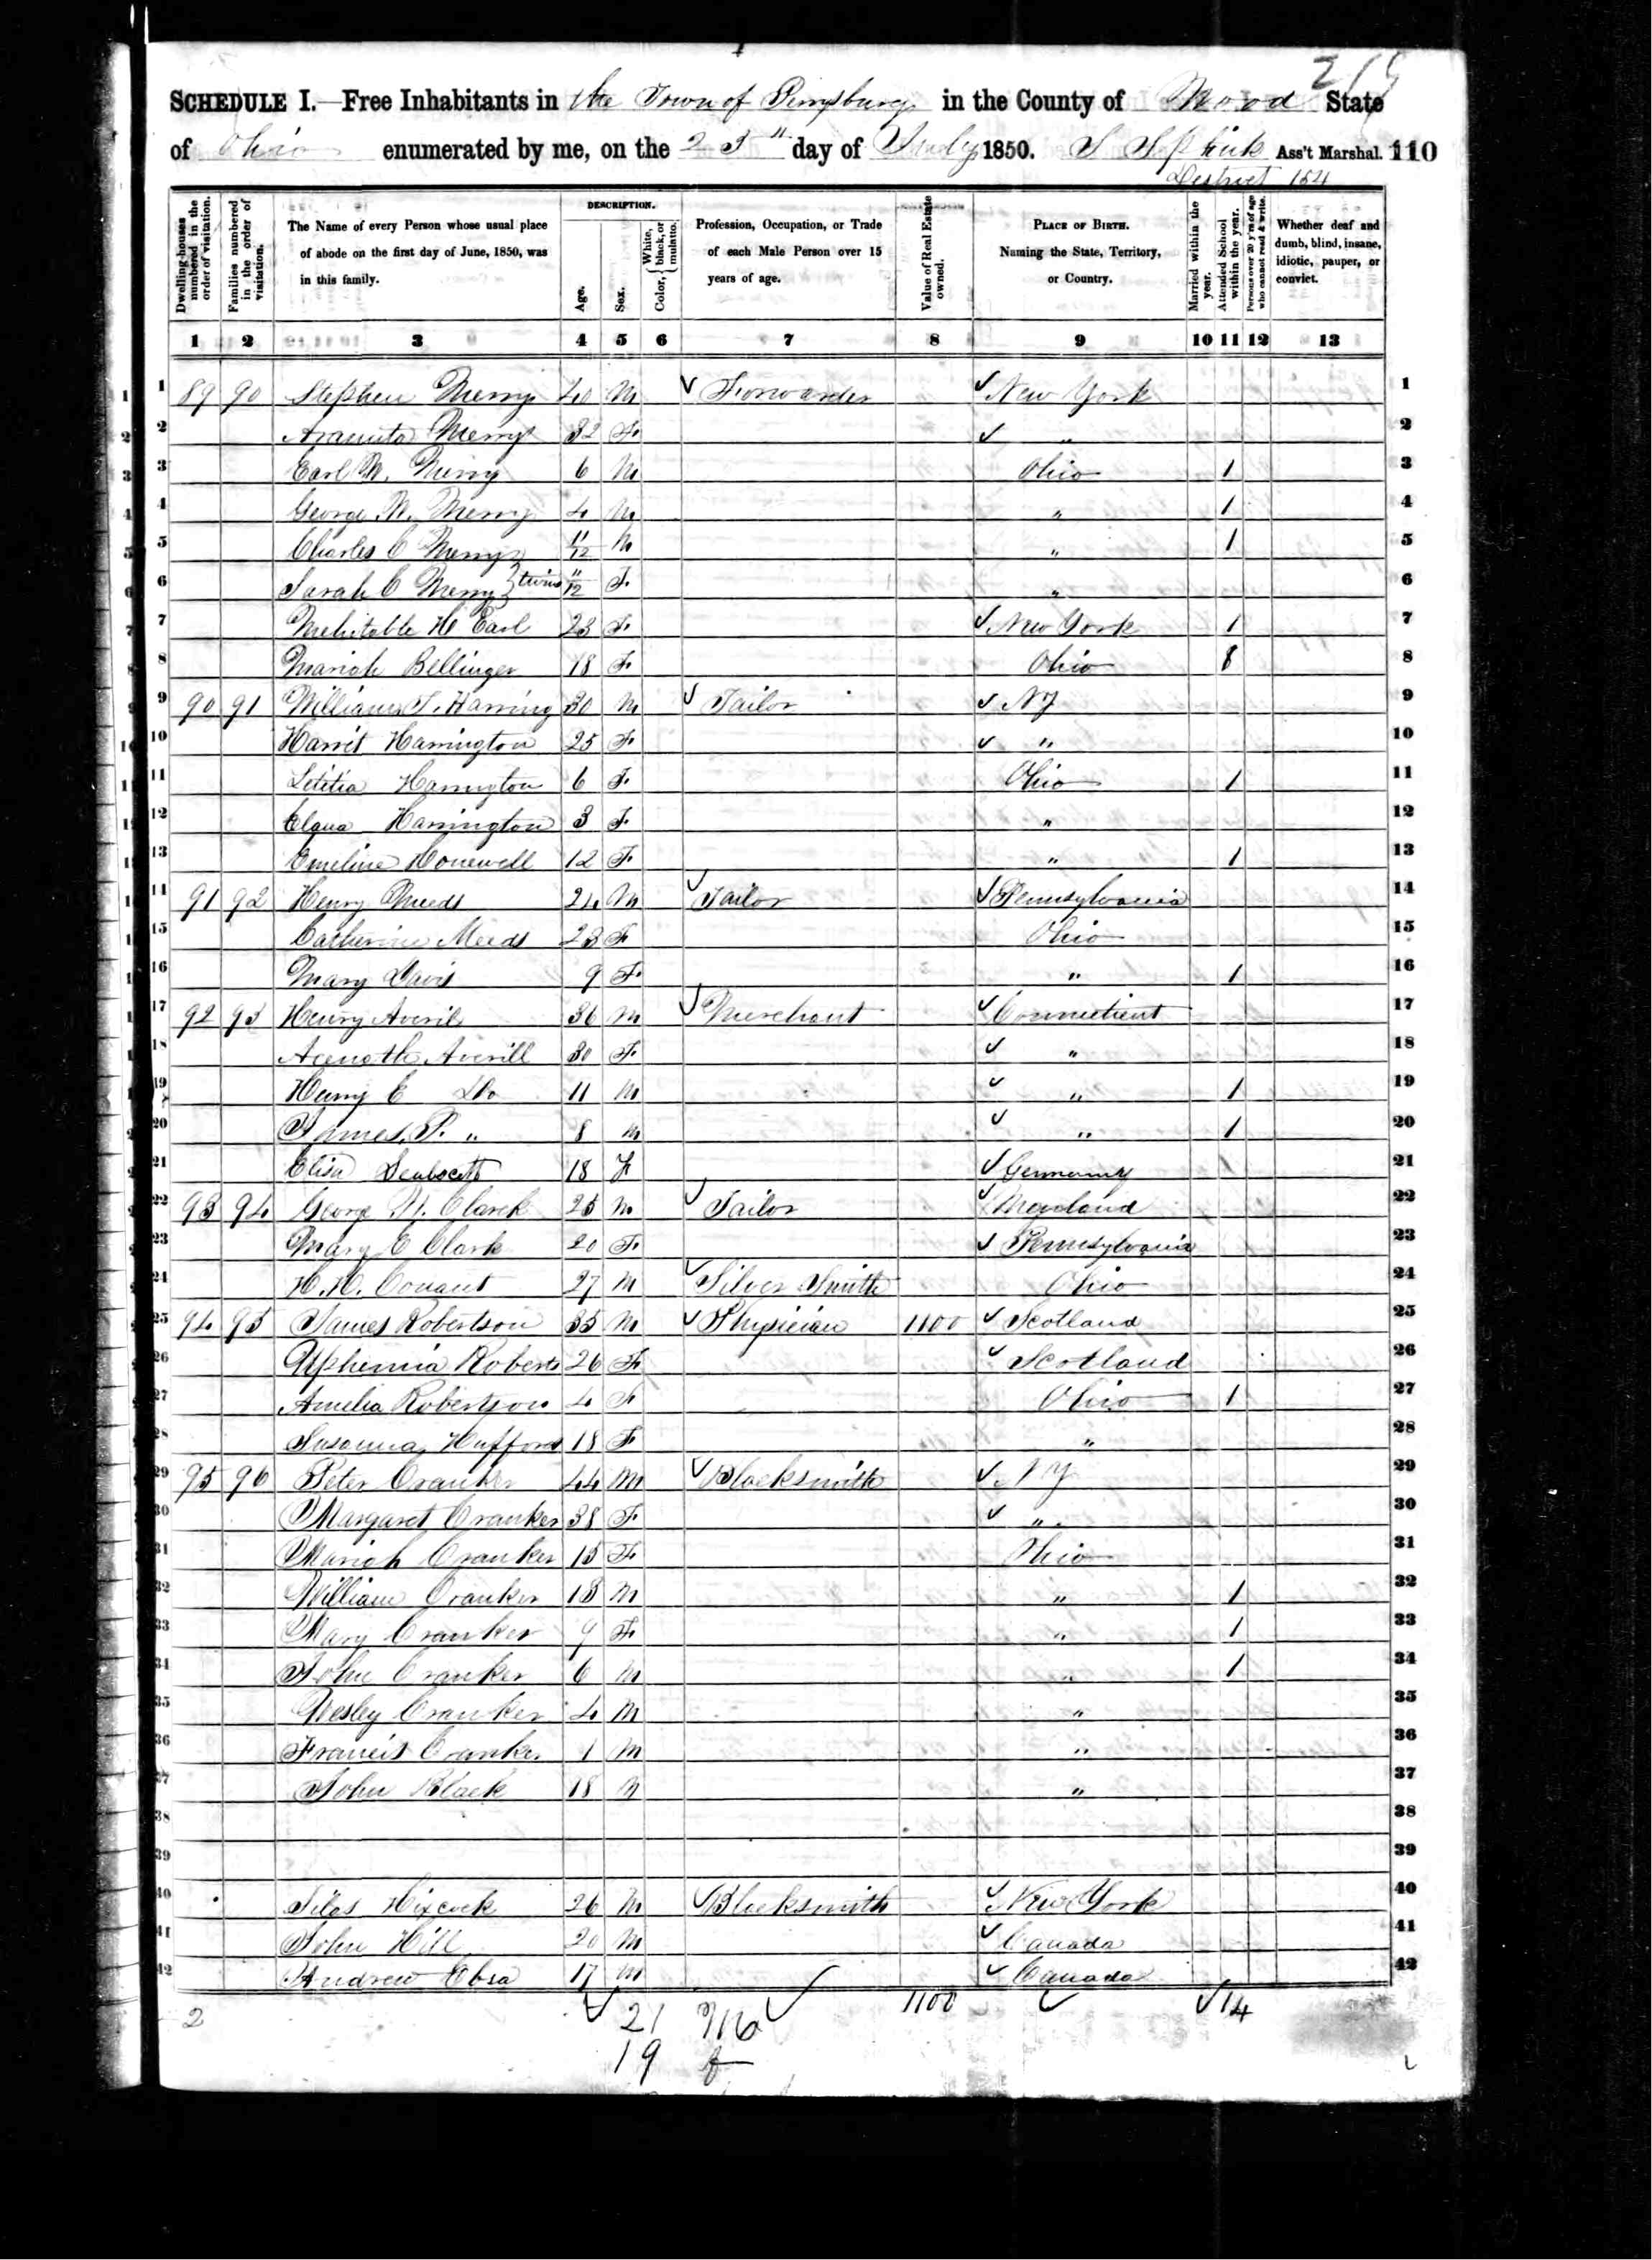 219
SCHEDULE I.—Free Inhabitants in the Town of Perrysburg in the County of Wood State
of Ohio enumerated by me, on the 25" day of July 1850. Ass't Marshal. 110
District 154
Dwelling-houses numbered in the order of visitation. Families numbered in the order of visitation. The Name of every Person whose usual place of abode on the first day of June, 1850, was in this family. DESCRIPTION. Age. Sex. Color, { White, black, or mulatto. Profession, Occupation, or Trade of each Male Person over 15 years of age. Value of Real Estate owned. PLACE OF BIRTH. Naming the State, Territory, or Country. Married within the year. Attended School within the year. Persons over 20 y'rs of age who cannot read & write. Whether deaf and dumb, blind, insane, idiotic, pauper, or convict.
1 2 3 4 5 6 7 8 9 10 11 12 13
1 89 90 Stephen Merry 40 M ✓ Forwarder ✓ New York 1
2 Araminta Merry 32 F ✓ " 2
3 Earl W. Merry 6 M Ohio 1 3
4 George W. Merry 4 M " 1 4
5 Charles C Merry 11/12 M " 1 5
6 Sarah C Merry } twins 11/12 F " 6
7 Mehitable H Earl 23 F ✓ New York 1 7
8 Mariah Bellinger 18 F Ohio 8
9 90 91 William T. Harring 30 M ✓ Tailor ✓ NY 9
10 Harrit Harrington 25 F ✓ " 10
11 Letitia Harrington 6 F Ohio 1 11
12 Harrington 3 F " 12
13 Emeline Honewell 12 F " 1 13
14 91 92 Henry Meeds 24 M ✓ Tailor ✓ Pennsylvania 14
15 Catherine Meeds 23 F Ohio 15
16 Mary Davis 9 F " 1 16
17 92 93 Henry Averil 36 M ✓ Merchant ✓ Connecticut 17
18 Acenath Averill 30 F ✓ " 18
19 Henry C Do 11 M ✓ " 1 19
20 James P. " 8 M ✓ " 1 20
21 Elisa 18 F ✓ Germany 21
22 93 94 George W. Clark 25 M ✓ Tailor ✓ Maryland 22
23 Mary E Clark 20 F ✓ Pennsylvania 23
24 H. H. Conant 27 M ✓ Silver Smith Ohio 24
25 94 95 James Robertson 35 M ✓ Physician 1100 ✓ Scotland 25
26 Uphemia Roberts 26 F ✓ Scotland 26
27 Amelia Robertson 4 F Ohio 1 27
28 Susanna Hufford 18 F " 28
29 95 96 Peter Cranker 44 M ✓ Blacksmith ✓ NY 29
30 Margaret Cranker 38 F ✓ " 30
31 Mariah Cranker 15 F Ohio 31
32 William Cranker 13 M " 1 32
33 Mary Cranker 9 F " 1 33
34 John Cranker 6 M " 1 34
35 Wesley Cranker 4 M " 35
36 Francis Cranker 1 M " 36
37 John Black 18 M " 37
38 38
39 39
40 Silas Hixcock 26 M ✓ Blacksmith ✓ New York 40
41 John Hill 20 M ✓ Canada 41
42 Andrew 17 M ✓ Canada 42
2 ✓ 21 ✓ 1100 ✓ ✓ 14
19 f